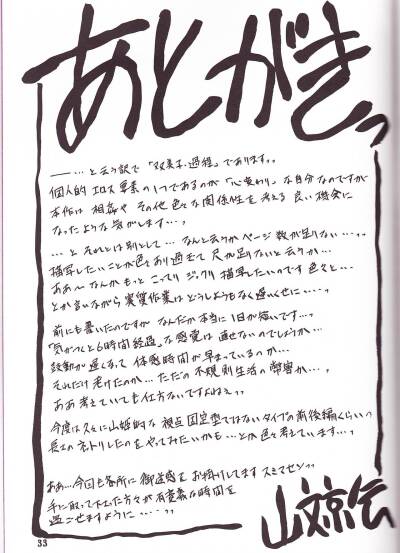 あとがきっ
――…と云う訳で「双美子・過程」であります,,
個人的エロス要素の1つであるのが「心変わり」な自分なのですが
本作は 相姦や その他色々な関係性を考える 良い機会に
なったような気がします…,
…と それとは別として…なんと云うかページ数が足りない…,,
描写したいことが色々あり過ぎて 尺が足りないと云うか…
ああ～なんかもっと こってり ジックリ 描写したいのです 色々と…
とか言いながら 実質作業は どうしようもなく遅いくせに…,
前にも書いたのですが なんだか本当に 1日が短いです…,
「気がつくと6時間経過」な感覚は 直せないのでしょうか…
鼓動が遅くなって 体感時間が早まっているのか…
それだけ老けたのか…ただの不規則生活の弊害か…,
ああ 考えていても仕方ないですよねぇ,,
今度は久々に山姫的な視点固定型ではないタイプの前後編くらいの
長さのネトリしたのをやってみたいかも…とか色々考えています…,
ああ…今回も各所に御迷惑をお掛けしてます スミマセン,,
手に取って下さった方々が有意義な時間を
過ごせますように…,,
山文京伝
33